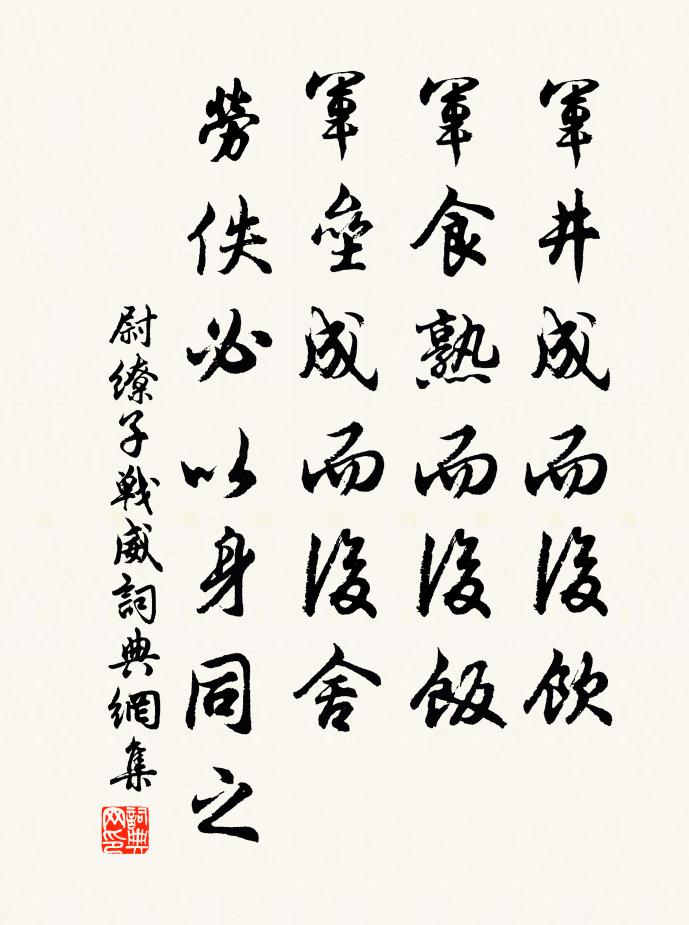 軍井成而後飲
軍食熟而後飯
軍壘成而後舍
勞佚必以身同之
尉繚子戰威詞典網集
詞典网印